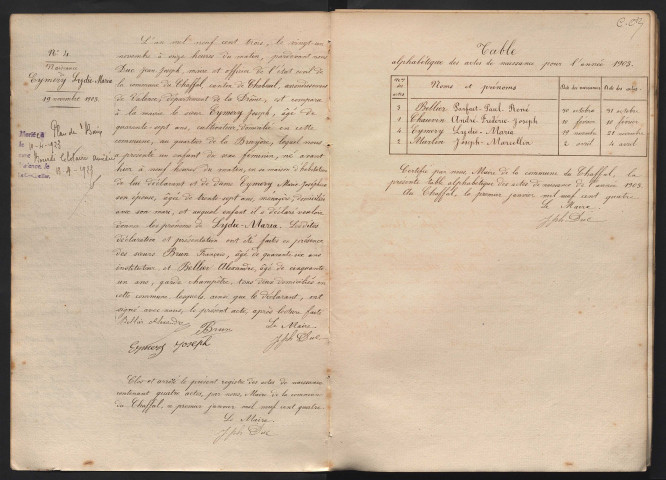 N° 4
Naissance
de
Eymery Lydie-Maria
19 novembre 1903.
L'an mil neuf cent trois, le vingt-un
novembre à onze heures du matin, pardevant nous
Duc Jean Joseph, maire et officier de l'état civil de
la commune du Chaffal, canton de Chabeuil, arrondissement
de Valence, département de la Drôme, est comparu
à la mairie le sieur Eymery Joseph, âgé de
quarante-sept ans, cultivateur, domicilié en cette
commune, au quartier de la lequel nous
a présenté un enfant du sexe féminin, né avant
hier à neuf heures du matin, en sa maison d'habitation
de lui déclarant et de dame Eymery Marie
son épouse, âgée de trente-sept ans, ménagère, domiciliée
avec son mari, et auquel enfant il a déclaré vouloir
donner les prénoms de Lydie-Maria. Lesdites
déclaration et présentation ont été faites en présence
des sieurs Brun François, âgé de quarante six ans
instituteur et Bellier Alexandre, âgé de cinquante-
un ans, garde champêtre, tous deux domiciliés en
cette commune, lesquels, ainsi que le déclarant, ont
signé avec nous, le présent acte, après lecture faite
Bellier Alexandre Brun Le Maire
Eymery Joseph Jph Duc
Clos et arrêté le présent registre des actes de naissance
contenant quatre actes, par nous, Maire de la commune
du Chaffal, le premier janvier mil neuf cent quatre
Le Maire
Jph Duc
Table
alphabétique des actes de naissance pour l'année 1903.
Nos des actes Noms et prénoms Date de naissance Date des actes
3 Bellier Parfait-Paul-René 30 octobre 31 octobre
1 Chauvin André-Frédéric-Joseph 10 février 11 février
4 Eymery Lydie-Maria 19 novembre 21 novembre
2 Martin Joseph-Marcellin 2 avril 4 avril
Certifié par nous, Maire de la commune du Chaffal, la
présente table alphabétique des actes de naissance de l'année 1903.
Au Chaffal, le premier janvier mil neuf cent quatre
Le Maire
Jph Duc